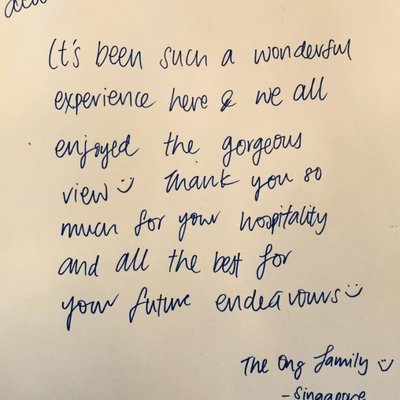 It's been such a wonderful
experience here & we all
enjoyed the gorgeous
view :) Thank you so
much for your hospitality
and all the best for
your future endeavours :)
The Ong Family :)
- Singapore